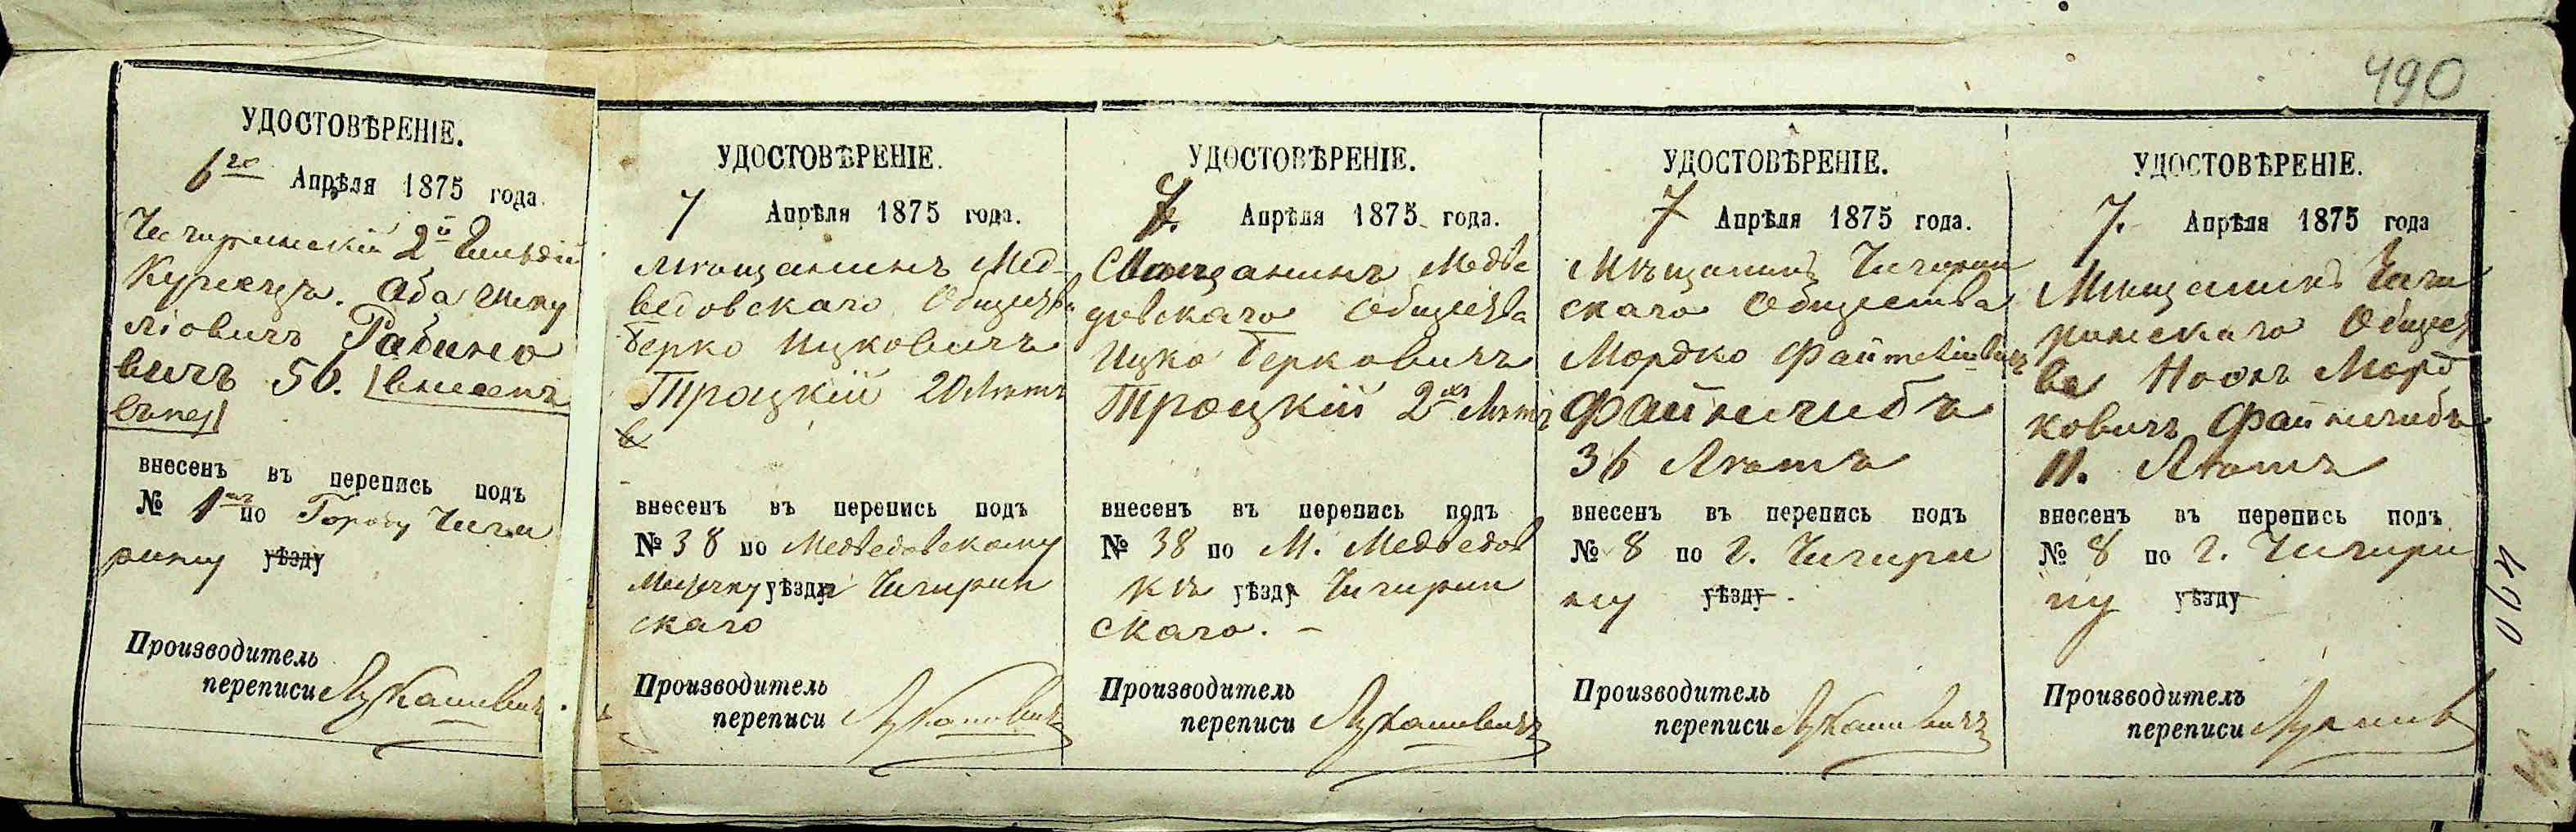 490
УДОСТОВѢРЕНІЕ.
6го Апрѣля 1875 года.
Чигиринскій 2й Гильдіи
Купецъ. Аба Шму
ліовичъ Рабино
вичъ 50. внесенъ
внесенъ въ перепись подъ
№ 1мъ по Городу Чиги
рину уѣзду
Производитель
переписи Лукашевичъ
УДОСТОВѢРЕНІЕ.
7 Апрѣля 1875 года.
Мѣщанинъ Мед-
ведовскаго Общества
Берко Ицковичъ
Троцкій 20 Лѣтъ
внесенъ въ перепись подъ
№ 38 по Медведовскому
Местечку уѣзда Чигирин
скаго
Производитель
переписи Лукашевичъ
УДОСТОВѢРЕНІЕ.
7. Апрѣля 1875 года.
Мѣщанинъ Медве
довскаго Общества
Ицко Берковичъ
Троцкій 2хъ Лѣтъ
внесенъ въ перепись подъ
№ 38 по М. Медведов
кѣ уѣзда Чигирин
скаго. —
Производитель
переписи Лукашевичъ
УДОСТОВѢРЕНІЕ.
7 Апрѣля 1875 года.
Мѣщанинъ Чигирин
скаго Общества
Мордко Файтелевичъ
Файнгибъ
36 Лѣтъ
внесенъ въ перепись подъ
№ 8 по г. Чигири
ну уѣзду.
Производитель
переписи Лукашевичъ
УДОСТОВѢРЕНІЕ.
7. Апрѣля 1875 года
Мѣщанинъ Чиги
ринскаго Общест
ва Морд
ковичъ Файнгибъ
11. Лѣтъ
внесенъ въ перепись подъ
№ 8 по г. Чигири
ну уѣзду
Производитель
переписи
490